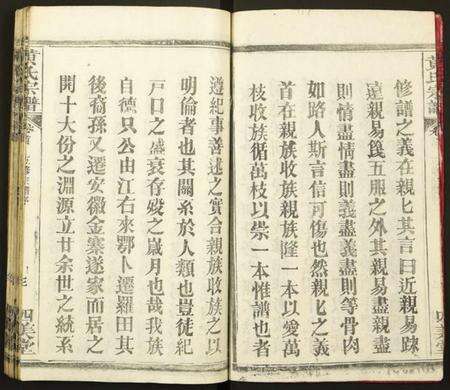 修譜之義在親親其言曰近親易踈
遠親易𩜙五服之外其親易盡親盡
則情盡情盡則義盡義盡則等骨肉
如路人斯言信可傷也然親親之義
首在敬族收族親族隆一本以愛萬
枝收族循萬枝以崇一本惟譜也者
遵紀事善述之實合親族收族之以
明倫者也其關系於人類也豈徒紀
戶口之盛衰存歿之歲月也哉我族
自德只公由江右來鄂卜遷羅田其
後裔孫又遷安徽金寨遂家而居之
開十大份之淵源立廿余世之統系
黃氏宗譜
四美堂